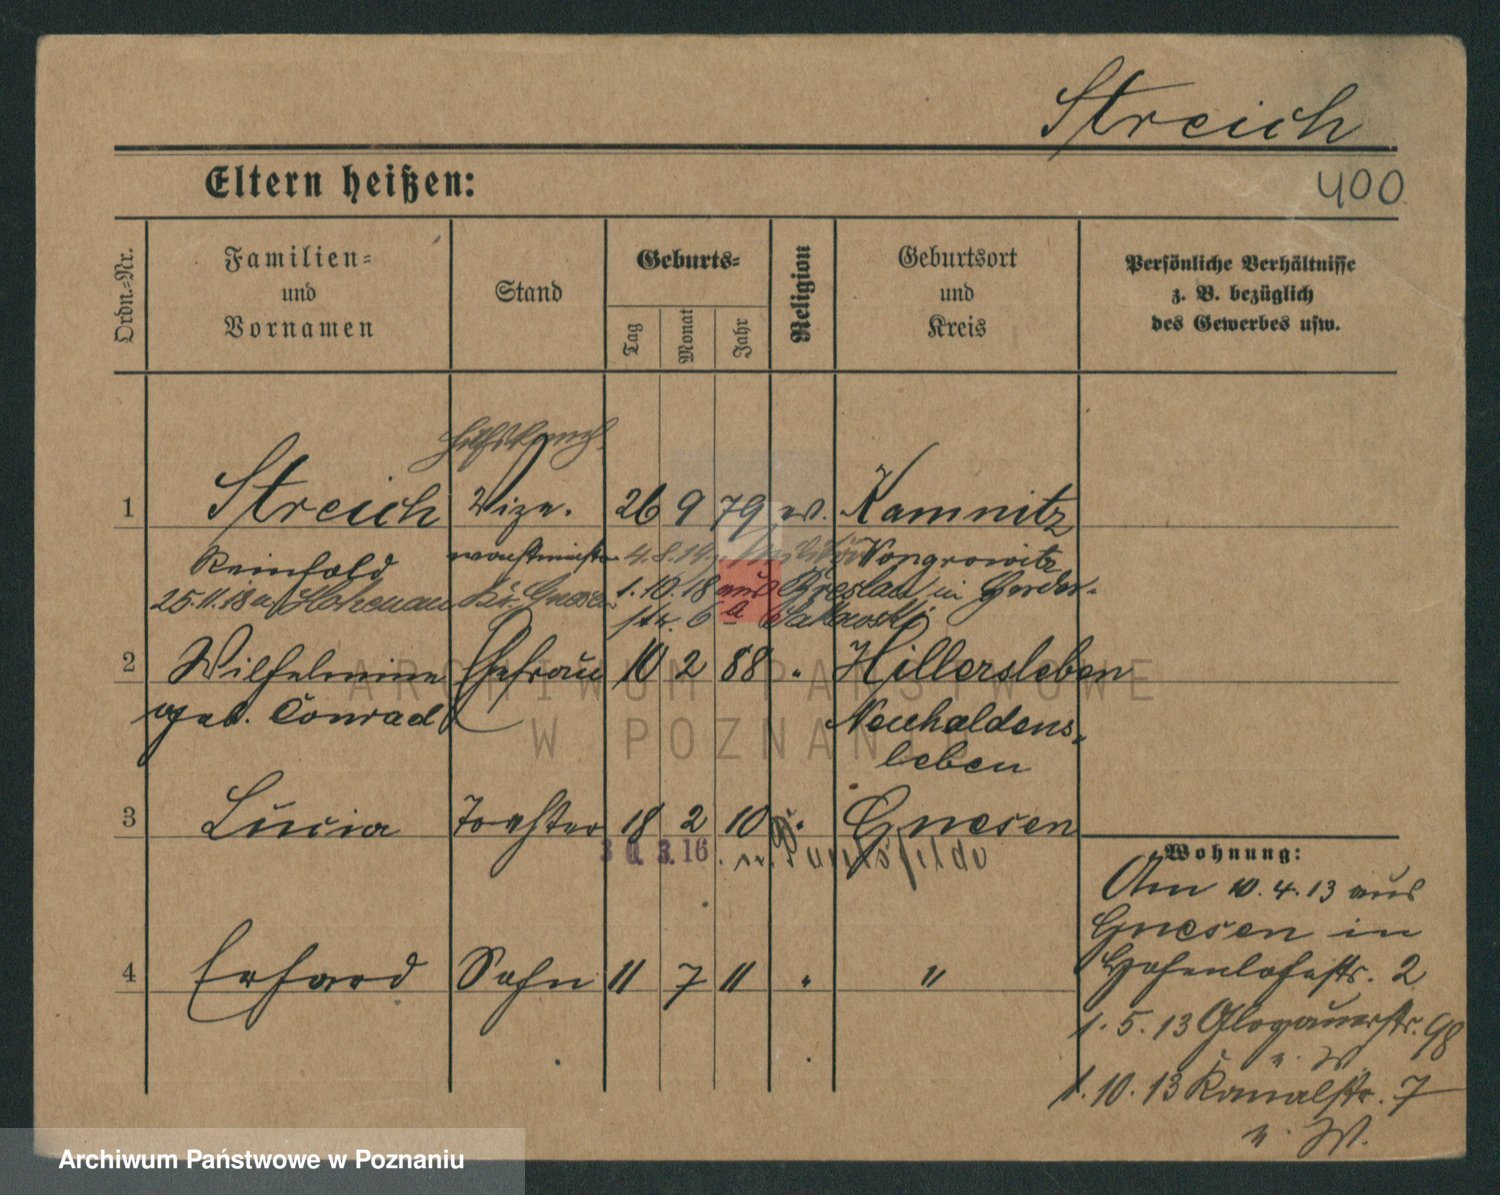 Streich
400
Eltern heißen:
Ordn.-Nr.
Familien-
und
Vornamen
Stand
Geburts-
Tag
Monat
Jahr
Religion
Geburtsort
und
Kreis
Persönliche Verhältnisse
z. B. bezüglich
des Gewerbes usw.
1 Streich Vize- 26 9 79 ev. Kamnitz
Reinhold wachtmeister 4.8.14 Militär
25.11.18 n/ Hohenau Kr. Gnesen 1.10.18 aus Breslau in Garder-
str. 6a
2 Wilhelmine Ehefrau 10 2 88 " Hillersleben
geb. Conrad Neuhaldens-
leben
3 Lucia Tochter 18 2 10 " Gnesen
30.3.16 n.
4 Erhard Sohn 11 7 11 " "
Wohnung:
Am 10.4.13 aus
Gnesen in
Hohenlohestr. 2
1.5.13 Glogauerstr. 98
n. W.
1.10.13 Kanalstr. 7
n. W.
ARCHIWUM PAŃSTWOWE
W POZNANIU
Archiwum Państwowe w Poznaniu